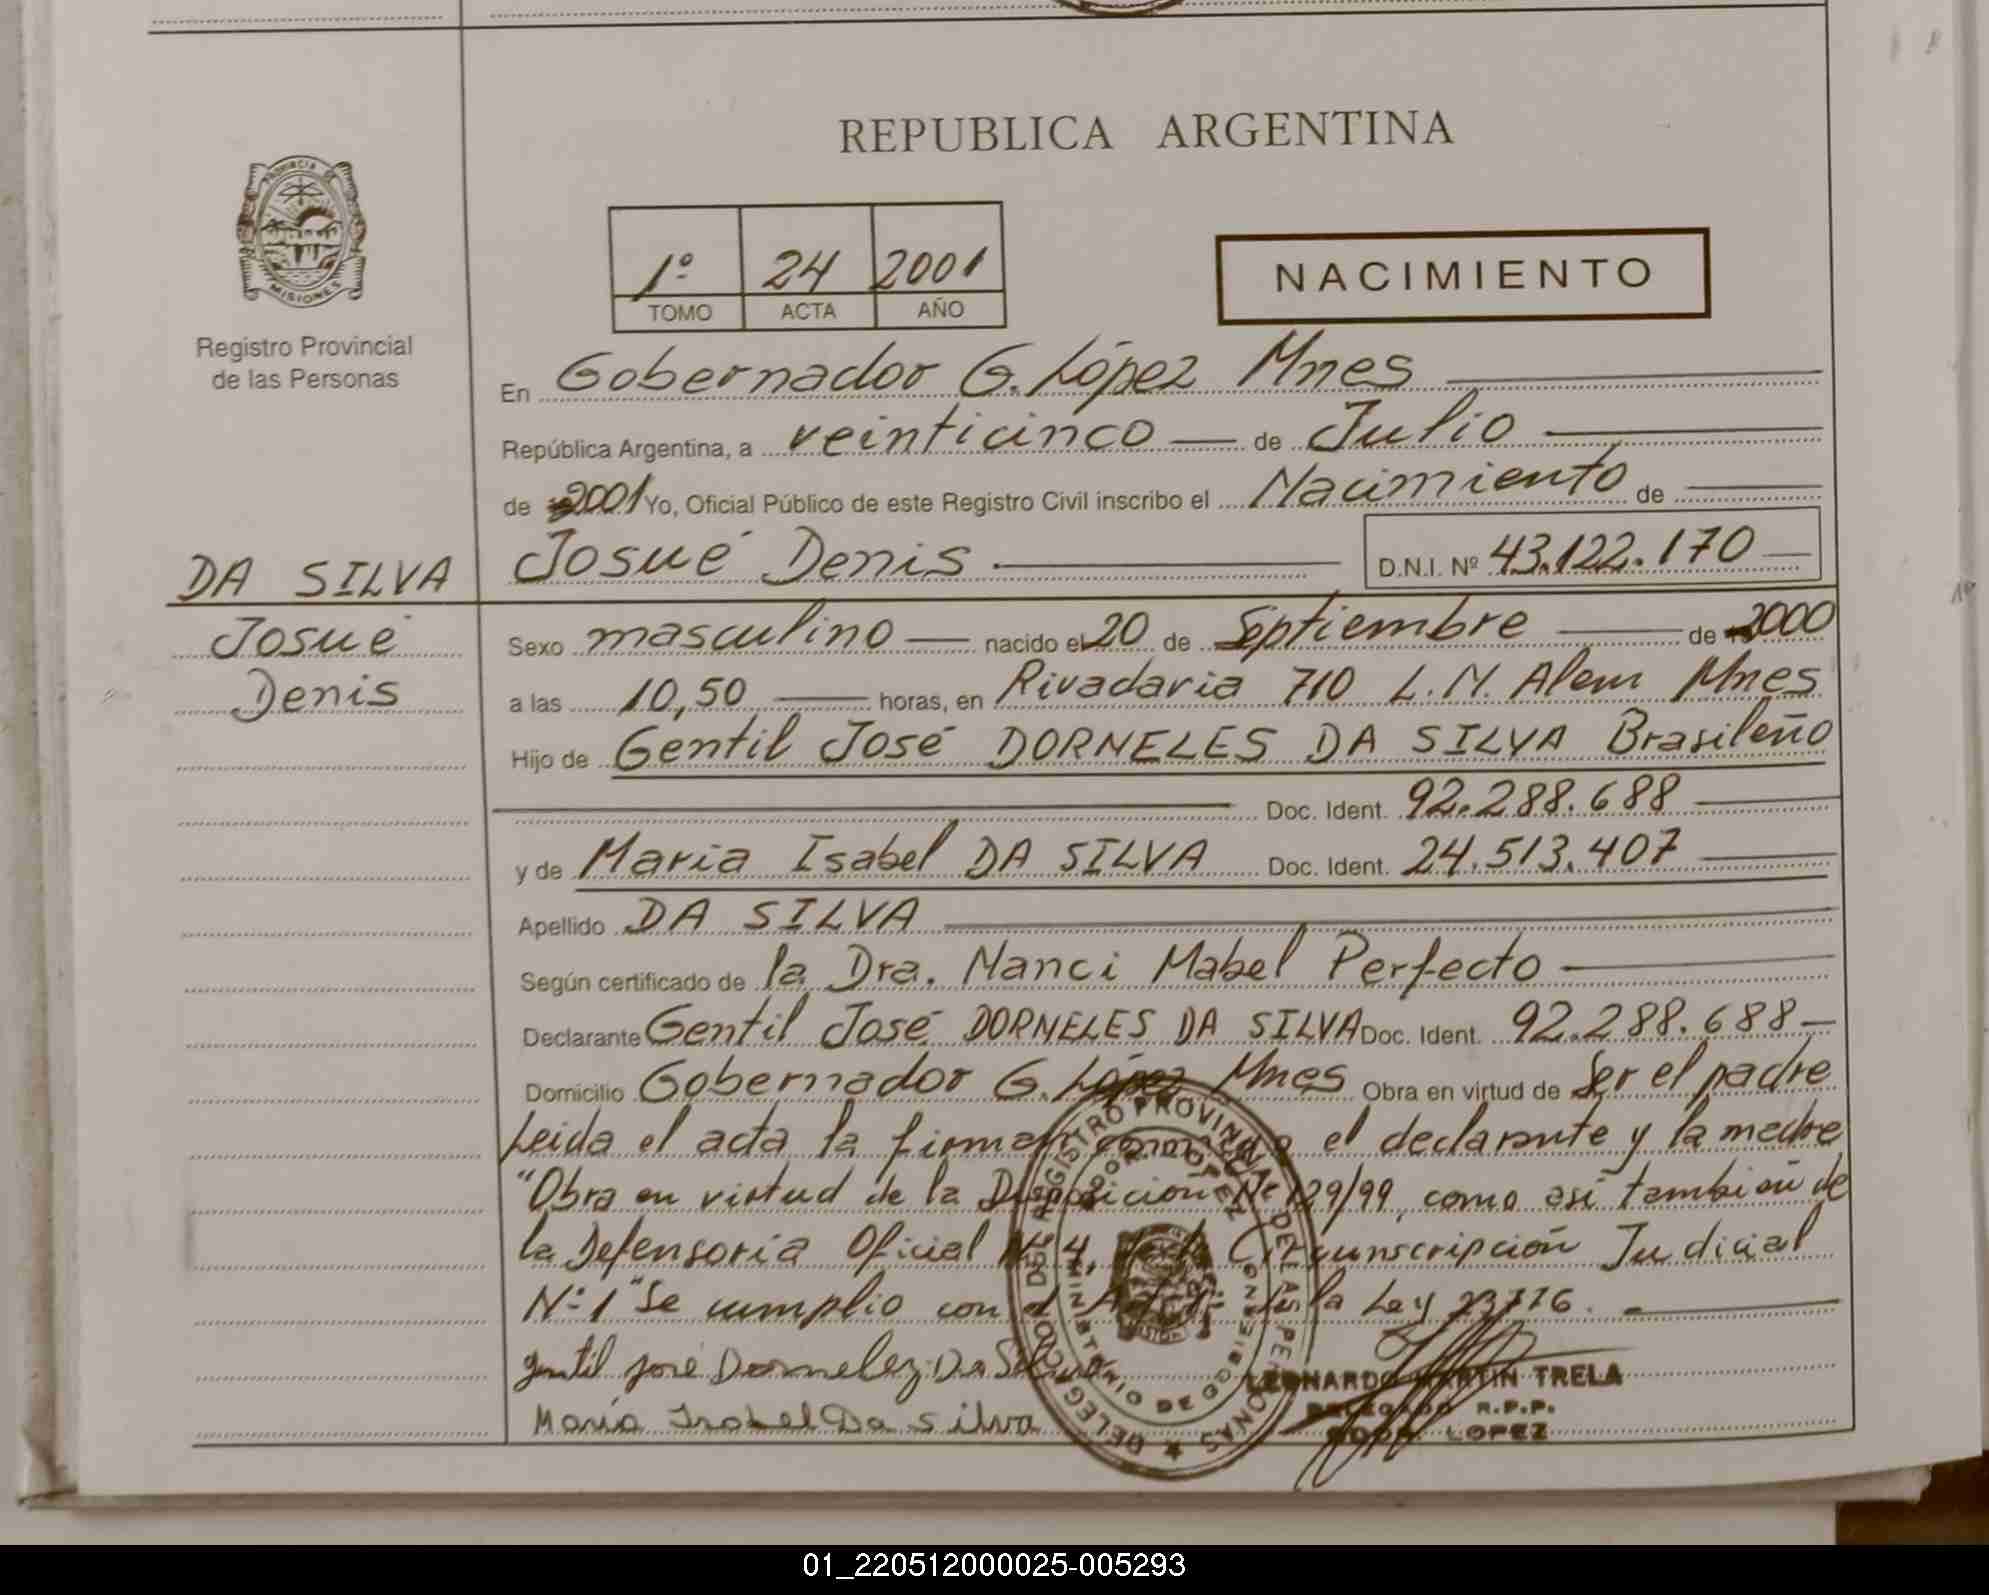 REPUBLICA ARGENTINA
PROVINCIA DE
MISIONES
Registro Provincial
de las Personas
1º 24 2001
TOMO ACTA AÑO
NACIMIENTO
En Gobernador G. López Mnes
República Argentina, a veinticinco de Julio
de 2001 Yo, Oficial Público de este Registro Civil inscribo el Nacimiento de
DA SILVA
Josué Denis D.N.I. Nº 43.122.170
Josué
Denis
Sexo masculino nacido el 20 de Septiembre de 2000
a las 10,50 horas, en Rivadavia 710 L.N. Alem Mnes
Hijo de Gentil José DORNELES DA SILVA Brasileño
Doc. Ident. 92.288.688
y de Maria Isabel DA SILVA Doc. Ident. 24.513.407
Apellido DA SILVA
Según certificado de la Dra. Nanci Mabel Perfecto
Declarante Gentil José DORNELES DA SILVA Doc. Ident. 92.288.688
Domicilio Gobernador G. López Mnes Obra en virtud de Ser el padre
Leida el acta la firman conmigo el declarante y la madre
"Obra en virtud de la Disposición Nº 129/99, como asi tambien de
la Defensoria Oficial Nº 4, de la Circunscripción Judicial
Nº 1" Se cumplio con el la Ley 23776.
Gentil José Dornelez Da Silva
María Isabel Da Silva
DELEGACION DEL REGISTRO PROVINCIAL DE LAS PERSONAS
GDOR. LOPEZ
MINISTERIO DE GOBIERNO
LEONARDO MARTIN TRELA
DELEGADO R.P.P.
GDOR. LOPEZ
01_220512000025-005293